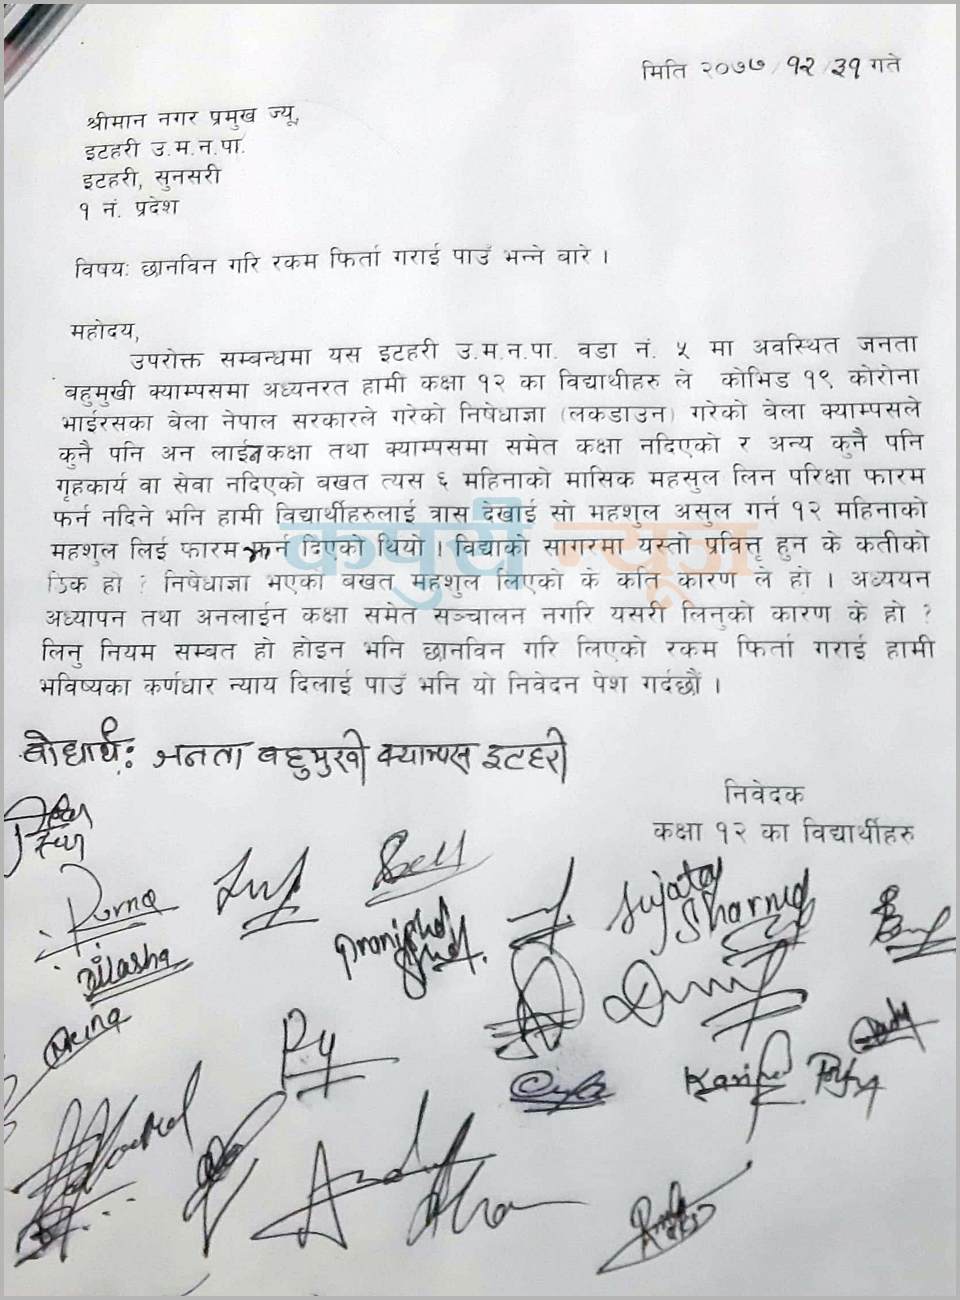 मिति २०७७/१२/३१ गते
श्रीमान नगर प्रमुख ज्यू,
इटहरी उ.म.न.पा.
इटहरी, सुनसरी
१ नं. प्रदेश
विषयः छानविन गरि रकम फिर्ता गराई पाउँ भन्ने बारे ।
महोदय,
उपरोक्त सम्बन्धमा यस इटहरी उ.म.न.पा. वडा नं. ५ मा अवस्थित जनता
बहुमुखी क्याम्पसमा अध्यनरत हामी कक्षा १२ का विद्यार्थीहरु ले कोभिड १९ कोरोना
भाईरसका बेला नेपाल सरकारले गरेको निषेधाज्ञा (लकडाउन) गरेको बेला क्याम्पसले
कुनै पनि अन लाईन कक्षा तथा क्याम्पसमा समेत कक्षा नदिएको र अन्य कुनै पनि
गृहकार्य वा सेवा नदिएको बखत त्यस ६ महिनाको मासिक महसुल लिन परिक्षा फारम
फर्न नदिने भनि हामी विद्यार्थीहरुलाई त्रास देखाई सो महशुल असुल गर्न १२ महिनाको
महशुल लिई फारम भर्न दिएको थियो । विद्याको सागरमा यस्तो प्रवित्तृ हुन के कतीको
ठिक हो ? निषेधाज्ञा भएको बखत महशुल लिएको के कति कारण ले हो । अध्ययन
अध्यापन तथा अनलाईन कक्षा समेत सञ्चालन नगरि यसरी लिनुको कारण के हो ?
लिनु नियम सम्बत हो होइन भनि छानविन गरि लिएको रकम फिर्ता गराई हामी
भविष्यका कर्णधार न्याय दिलाई पाउँ भनि यो निवेदन पेश गर्दछौं ।
बोधार्थः जनता बहुमुखी क्याम्पस इटहरी
निवेदक
कक्षा १२ का विद्यार्थीहरु
Sujata
Sharma
Purna
कपुरी न्यूज